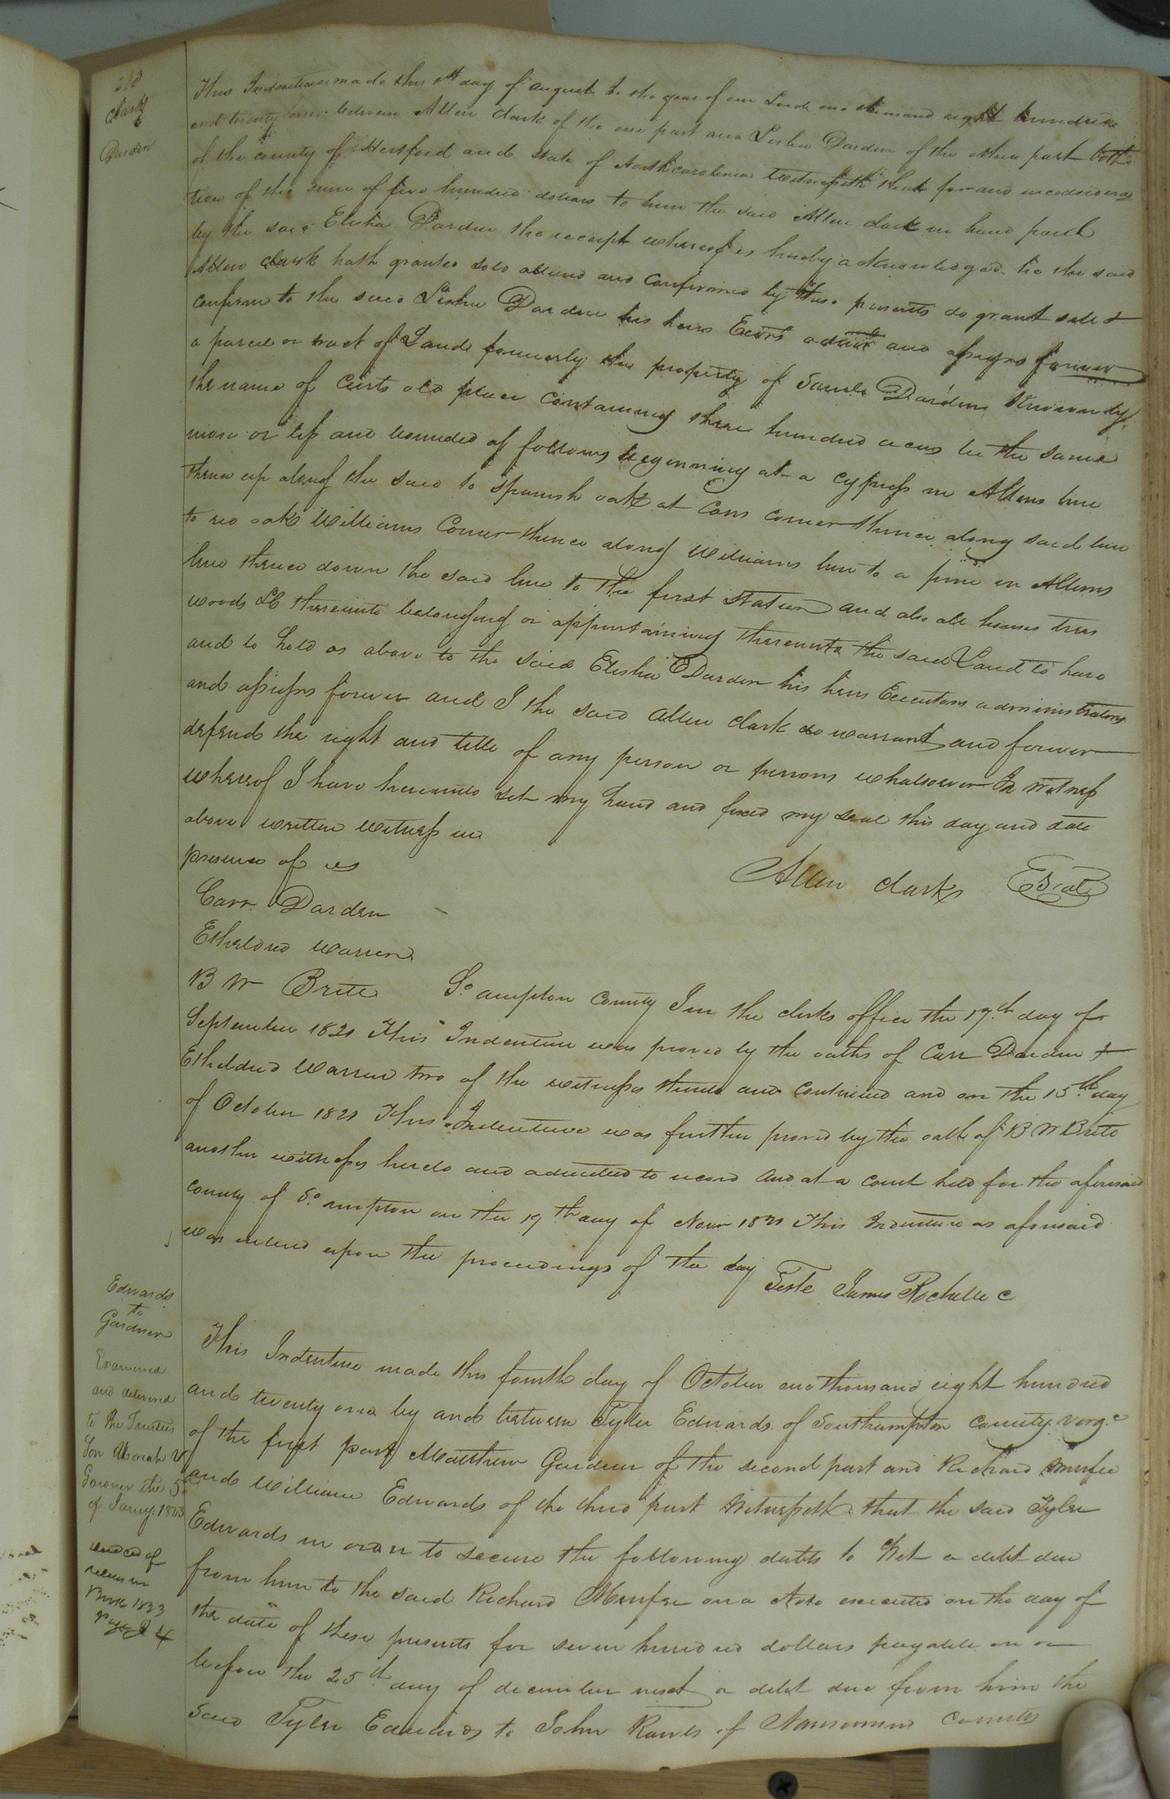 Clark
Darden
This Indenture made this day of August in the year of our Lord one thousand eight hundred
and twenty one between Allen Clark of the one part and Elisha Darden of the other part both
of the county of Hertford and State of North carolina Witnesseth that for and in considera
tion of the sum of five hundred dollars to him the said Allen Clark in hand paid
by the said Elisha Darden the receipt whereof is hereby acknowledged he the said
Allen Clark hath granted sold aliened and confirmed by these presents do grant sell &
confirm to the said Elisha Darden his heirs Exors admrs and assigns forever
a parcel or tract of Land formerly the property of Darden known by
the name of old place containing three hundred acres be the same
more or less and bounded as follows beginning at a cypress in Allens line
thence up along the said to Spanish oak at Carrs corner thence along said line
to red oak Williams Corner thence along Williams line to a pine in Allens
line thence down the said line to the first Station and also all houses trees
woods &c thereunto belonging or appurtaining thereunto the said Land to have
and to hold as above to the said Elisha Darden his heirs Executors administrators
and assigns forever and I the said Allen Clark do warrant and forever
defend the right and title of any person or persons whatsoever In Witness
whereof I have hereunto set my hand and fixed my seal this day and date
above written Witness in
presence of us
Allen Clark Seal
Carr Darden
Etheldred Warren
B W Brite So ampton County In the clerks office the 17th day of
September 1821 This Indenture was proved by the oaths of Carr Darden &
Etheldred Warren two of the witnesses thereto and continued and on the 15th day
of October 1821 This Indenture was further proved by the oath of B W Brite
another witness hereto and admitted to record And at a court held for the aforesaid
county of So ampton on the 19th day of Novr 1821 This Indenture as aforesaid
was entered upon the proceedings of the day Teste James Rochelle C
Edwards
to
Gardner
Examined
and delivered
to the Trustees
the 5
of Jany 1823
release in
Book 1833
This Indenture made this fourth day of October one thousand eight hundred
and twenty one by and between Tyler Edwards of Southampton County Virga
of the first part Matthew Gardner of the second part and Richard Murfee
and William Edwards of the third part Witnesseth that the said Tyler
Edwards in order to secure the following debts to Wit a debt due
from him to the said Richard Murfee on a Note executed on the day of
the date of these presents for seven hundred dollars payable on or
before the 25th day of december next a debt due from him the
said Tyler Edwards to John Rawls of Nansemond County